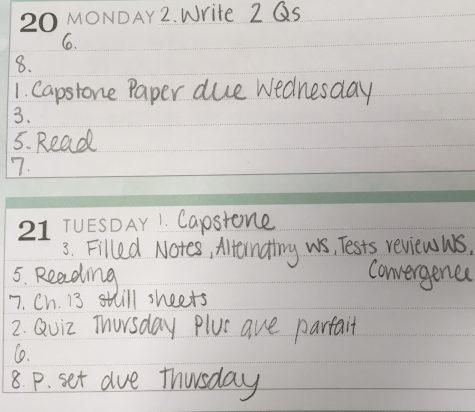 20 MONDAY 2. Write 2 Qs
6.
8.
1. Capstone Paper due Wednesday
3.
5. Read
7.
21 TUESDAY 1. Capstone
3. Filled Notes, Alternating WS, Tests review WS,
5. Reading Convergence
7. Ch. 13 skill sheets
2. Quiz Thursday Plus que parfait
6.
8. P. set due Thursday